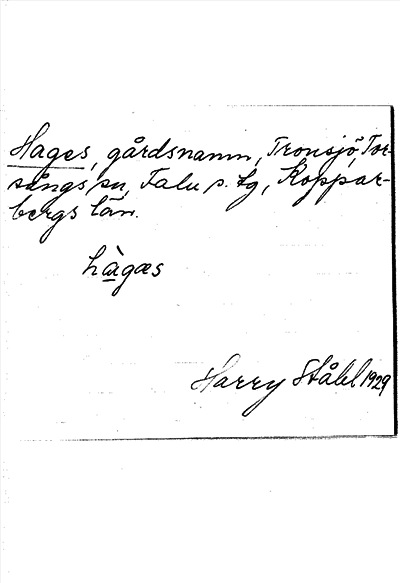 Hages, gårdsnamn, Tronsjö, Tor-
sångs sn, Falu s. tg, Koppar-
bergs län.
hàgæs
Harry Ståhl 1929